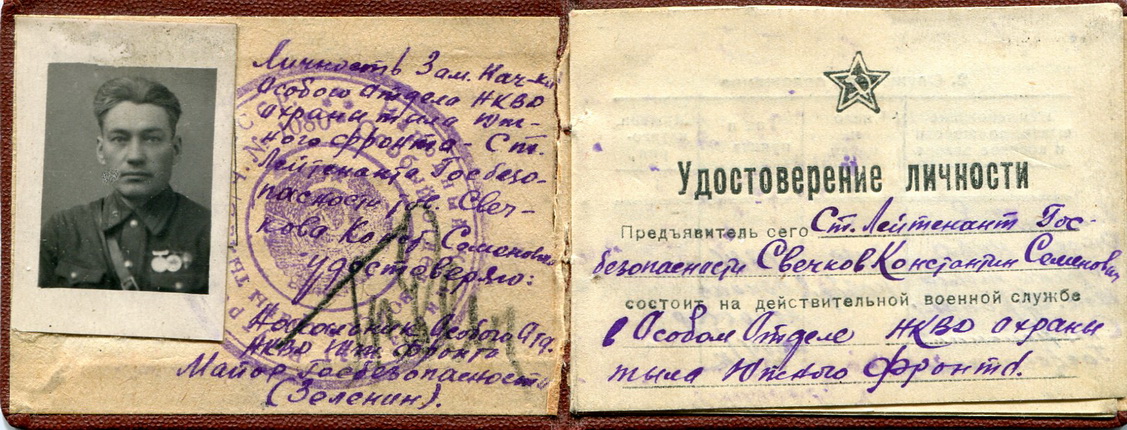 Личность Зам. Нач-ка
Особого Отдела НКВД
охраны тыла Юж-
ного фронта - Ст.
Лейтенанта Госбезо-
пасности тов. Свеч-
кова Конст. Семеновича
удостоверяю:
Начальник Особого Отд.
НКВД Юж. Фронта
Майор Госбезопасности
(Зеленин).
Удостоверение личности
Предъявитель сего Ст. Лейтенант Гос-
безопасности Свечков Константин Семенович
состоит на действительной военной службе
в Особом Отделе НКВД охраны
тыла Южного Фронта.